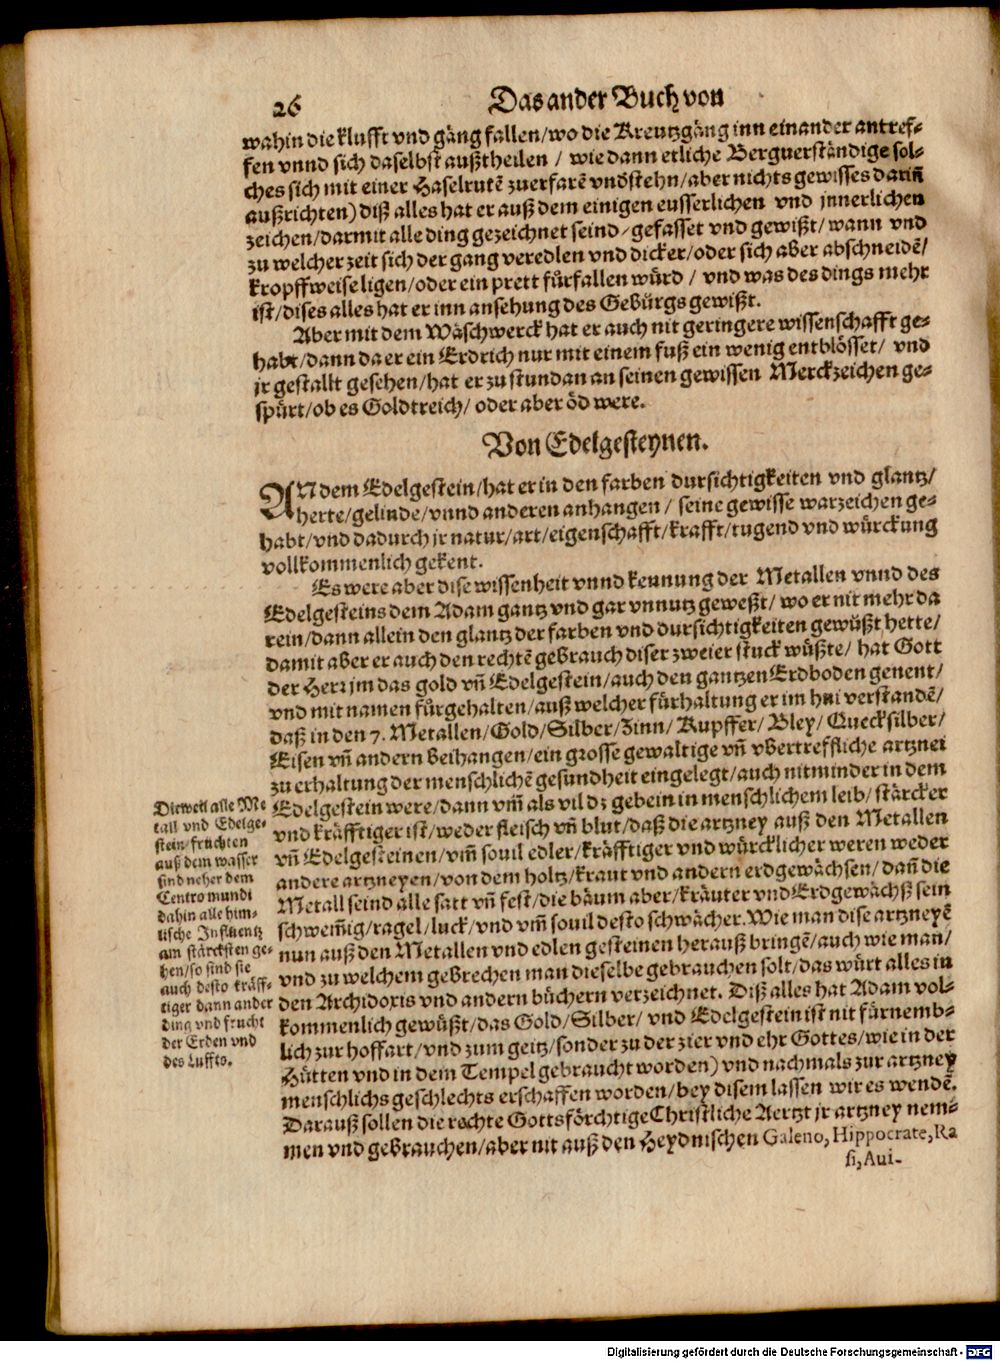 26
Das ander Buch von
wahin die klufft vnd gäng fallen/wo die Kreutzgäng inn einander antref-
fen vnnd sich daselbst außtheilen / wie dann etliche Berguerständige sol-
ches sich mit einer Haselrutē zuerfarē vndstehn/aber nichts gewisses darin̄
außrichten) diß alles hat er auß dem einigen eusserlichen vnd jnnerlichen
zeichen/darmit alle ding gezeichnet seind/gefasset vnd gewißt/wann vnd
zu welcher zeit sich der gang veredlen vnd dicker/oder sich aber abschneidē/
kropffweise ligen/oder ein prett fürfallen würd / vnd was des dings mehr
ist/dises alles hat er inn ansehung des Gebürgs gewißt.
Aber mit dem Wäschwerck hat er auch nit geringere wissenschafft ge-
habt/dann da er ein Erdrich nur mit einem fuß ein wenig entblösset/ vnd
jr gestallt gesehen/hat er zu stundan an seinen gewissen Merckzeichen ge-
spürt/ob es Goldtreich/ oder aber öd were.
Von Edelgesteynen.
AN dem Edelgestein/hat er in den farben dursichtigkeiten vnd glantz/
herte/gelinde/vnnd anderen anhangen / seine gewisse warzeichen ge-
habt/vnd dadurch jr natur/art/eigenschafft/krafft/tugend vnd würckung
vollkommenlich gekent.
Es were aber dise wissenheit vnnd kennung der Metallen vnnd des
Edelgesteins dem Adam gantz vnd gar vnnutz geweßt/ wo er nit mehr da
rein/dann allein den glantz der farben vnd dursichtigkeiten gewüßt hette/
damit aber er auch den rechtē gebrauch diser zweier stuck wüßte/ hat Gott
der Herr jm das gold vn̄ Edelgestein/auch den gantzen Erdboden genent/
vnd mit namen fürgehalten/auß welcher fürhaltung er im hui verstandē/
daß in den 7. Metallen/Gold/Silber/Zinn/Kupffer/Bley/Quecksilber/
Eisen vn̄ andern beihangen/ein grosse gewaltige vn̄ vbertreffliche artznei
zu erhaltung der menschlichē gesundheit eingelegt/auch nitminder in dem
Edelgestein were/dann vm̄ als vil dz gebein in menschlichem leib/stärcker
vnd kräfftiger ist/weder fleisch vn̄ blut/daß die artzney auß den Metallen
vn̄ Edelgesteinen/vm̄ souil edler/kräfftiger vnd würcklicher weren weder
andere artzneyen/von dem holtz/kraut vnd andern erdgewächsen/dan̄ die
Metall seind alle satt vn̄ fest/die bäum aber/kräuter vnd Erdgewächß sein
schwem̄ig/ragel/luck/vnd vm̄ souil desto schwächer. Wie man dise artzneyē
nun auß den Metallen vnd edlen gesteinen herauß bringē/auch wie man/
vnd zu welchem gebrechen man dieselbe gebrauchen solt/das würt alles in
den Archidoxis vnd andern büchern verzeichnet. Diß alles hat Adam vol-
kommenlich gewüßt/das Gold/Silber/ vnd Edelgestein ist nit fürnemb-
lich zur hoffart/vnd zum geitz/sonder zu der zier vnd ehr Gottes/wie in der
Hütten vnd in dem Tempel gebraucht worden) vnd nachmals zur artzney
menschlichs geschlechts erschaffen worden/bey disem lassen wir es wendē.
Darauß sollen die rechte Gottsförchtige Christliche Aertzt jr artzney nem-
men vnd gebrauchen/aber nit auß den Heydnischen Galeno, Hippocrate, Ra
si, Aui-
Dieweil alle Me
tall vnd Edelge-
stein/fruchten
auß dem wasser
sind neher dem
Centro mundi
dahin alle him-
lische Influentz
am stärcksten ge-
hen/so sind sie
auch desto kräff-
tiger dann ander
ding vnd frucht
der Erden vnd
des Luffts.
Digitalisierung gefördert durch die Deutsche Forschungsgemeinschaft - DFG